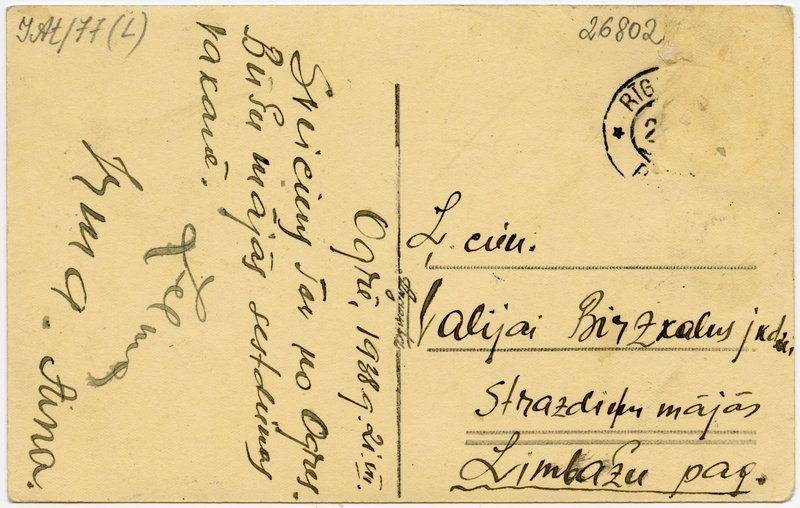 IAt/77(L)
26802
RĪG
Ogrē, 1938 g. 21. VII.
Sveiciens Tev no Ogres.
Būšu mājās sestdienas
vakarā.
Irma. Aina.
Ļ. cien.
Valijai Birzkalns jkdz.
Strazdiņu mājās
Limbažu pag.